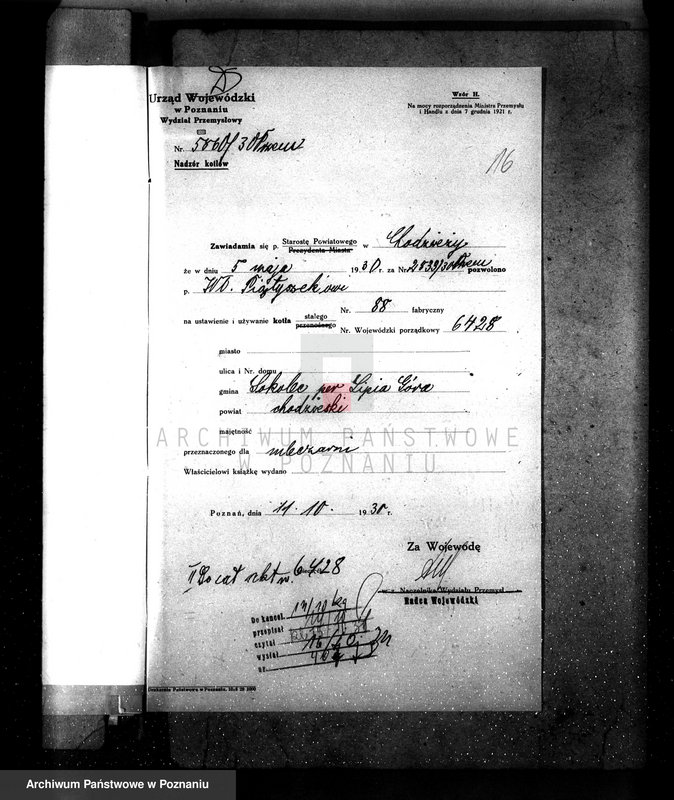 Urząd Wojewódzki
w Poznaniu
Wydział Przemysłowy
Nr. 5860/30
Nadzór kotłów
Wzór II.
Na mocy rozporządzenia Ministra Przemysłu
i Handlu z dnia 7 grudnia 1921 r.
16
Zawiadamia się p. Starostę Powiatowego w Chodzieży
Prezydenta Miasta
że w dniu 5 maja 1930 r. za Nr. pozwolono
p. WD.
Nr. 88 fabryczny
na ustawienie i używanie kotła stałego
przenośnego
Nr. Wojewódzki porządkowy 6428
miasto
ulica i Nr. domu
gmina Sokolec per Lipia Góra
powiat chodzieski
majętność
przeznaczonego dla mleczarni
Właścicielowi książkę wydano
Poznań, dnia 11. 10. 1930 r.
Za Wojewodę
w z. Naczelnika Wydziału Przemysł.
Radca Wojewódzki
II Do akt 6428
Do kancel.
przepisał
czytał
wysłał
nr.
Drukarnia Państwowa w Poznaniu.
ARCHIWUM PAŃSTWOWE
W POZNANIU
Archiwum Państwowe w Poznaniu